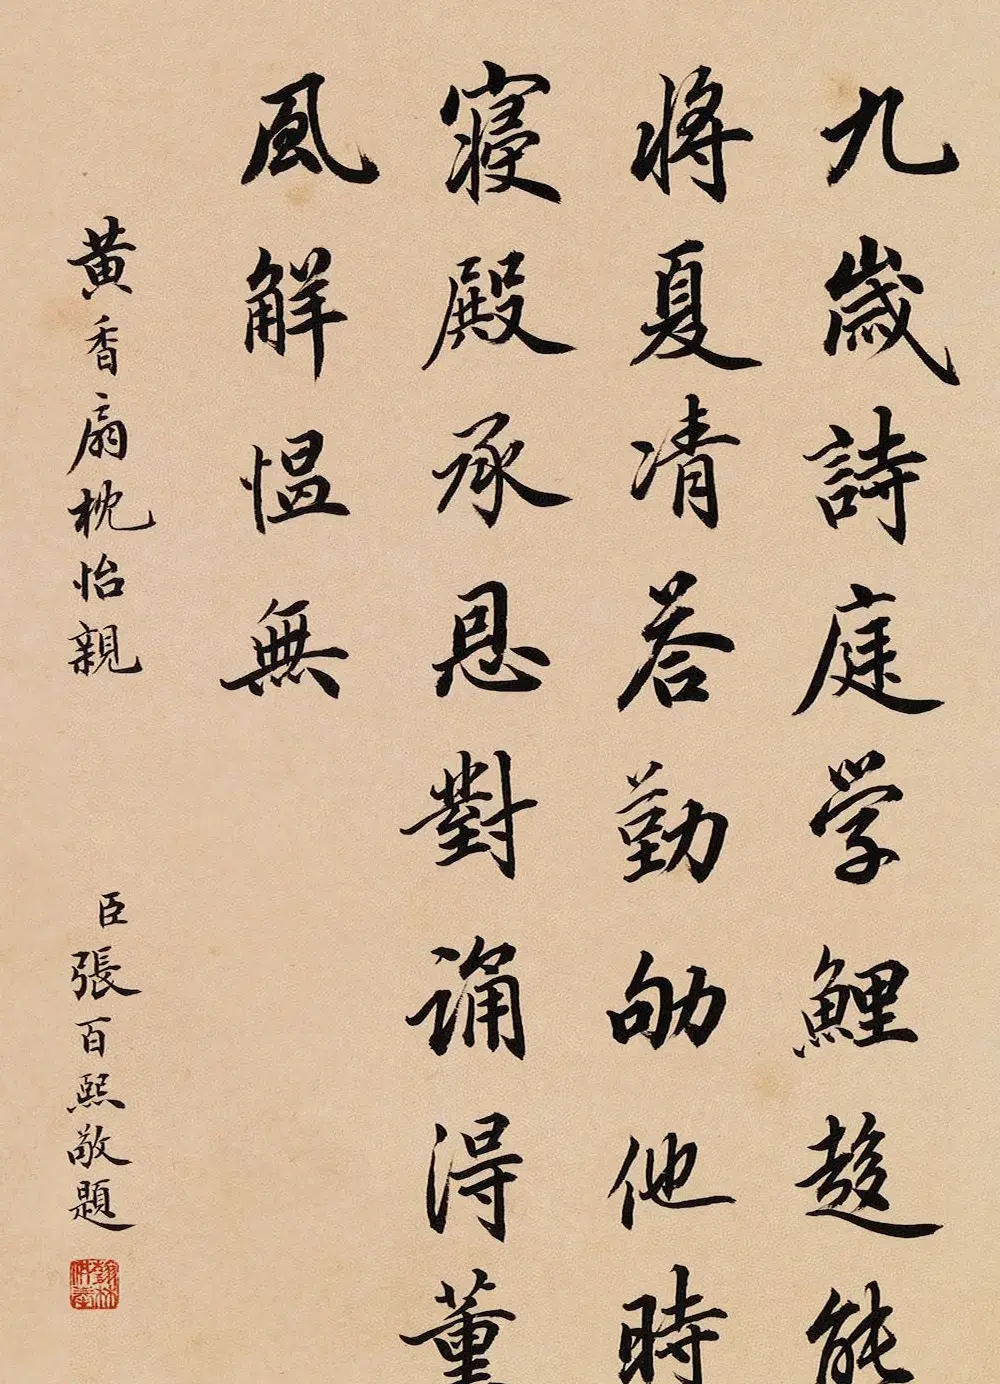 九歲詩庭学鯉趍能
將夏凊荅勤劬他時
寝殿承恩對誦得董
風解愠無
黃香扇枕怡親
臣張百熙敬題